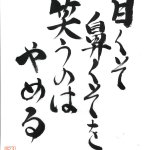 目くそ
鼻くそを
笑うのは
やめる